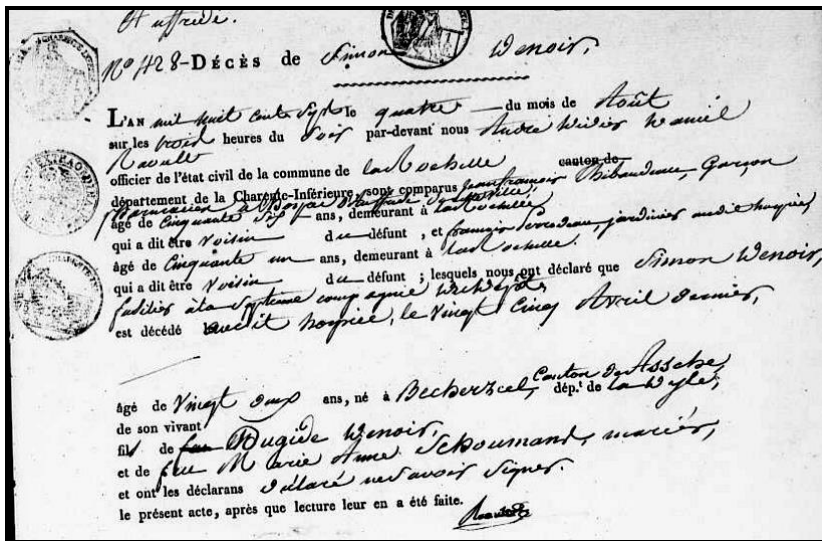 N° 428 - DÉCÈS de Simon Wenoir,
L'AN mil huit cents sept le quatre — du mois de Août
sur les trois heures du Soir par-devant nous André Daniel
Raoult
officier de l'état civil de la commune de La Rochelle canton de
département de la Charente-Inférieure, sont comparus jean françois Thibaudeau, Garçon
âgé de Cinquante Six ans, demeurant à La Rochelle
qui a dit être Voisin du défunt, et françois jardinier audit hospice,
âgé de Cinquante un ans, demeurant à La Rochelle.
qui a dit être Voisin du défunt; lesquels nous ont déclaré que Simon Wenoir,
fusilier à la Septieme compagnie
est décédé audit hospice, le vingt Cinq Avril dernier,
âgé de Vingt deux ans, né à Canton de Assche, dép.t de la Dyle,
de son vivant
fils de feu Wenoir,
et de feu Marie Anne Schoumand, mariés,
et ont les déclarans déclaré ne Savoir Signer.
le présent acte, après que lecture leur en a été faite.